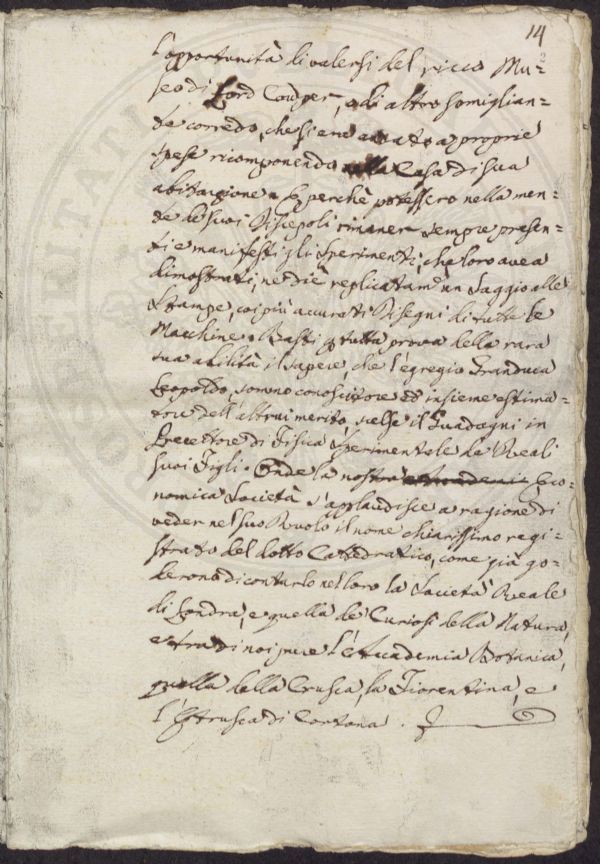 14
2
l'opportunità di valersi del ricco Mu=
seo di Lord Cowper, o di altro somiglian=
te corredo, che si era a proprie
spese ricomponendo nella Casa di sua
abitazione. E perchè potessero nella men=
te de' suoi Discepoli rimaner sempre presen=
ti e manifesti gli sperimenti, che loro avea
dimostrati, ne diè replicatam.e un Saggio alle
Stampe, coi più accurati Disegni di tutte le
Macchine. Basti p tutta prova della rara
sua abilità il sapere, che l'egregio Granduca
Leopoldo, sommo conoscitore ed insieme estima=
tore dell'altrui merito, scelse il Guadagni in
Precettore di Fisica Sperimentale de' Reali
suoi Figli. Onde la nostra Eco=
nomica Società s'applaudisce a ragione di
veder nel suo Ruolo il nome chiarissimo regi=
strato del dotto Cattedratico, come già go=
derono di contarlo nel loro la Società Reale
di Londra, e quella de' Curiosi della Natura,
e tra di noi pure l'Accademia Botanica,
quella della Crusca, la Fiorentina, e
l'Etrusca di Cortona.